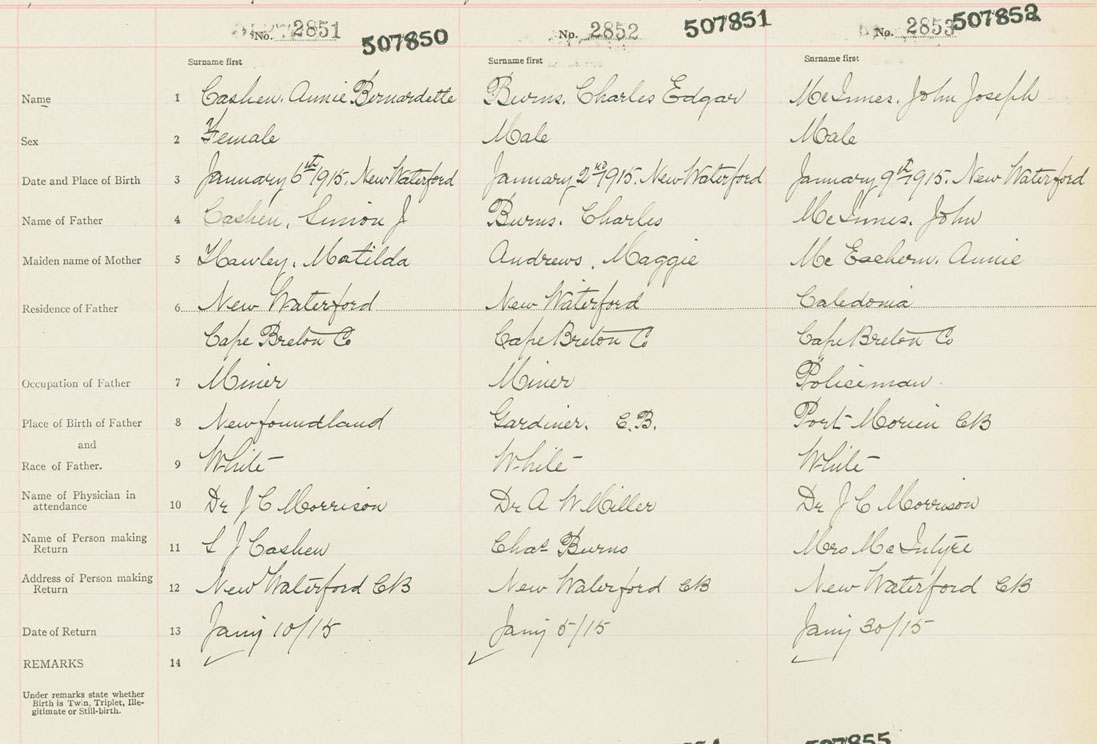 No. 2851 507850 No. 2852 507851 No. 2853 507852
Surname first Surname first Surname first
Name 1 Cashen. Annie Bernardette Burns. Charles Edgar McInnes. John Joseph
Sex 2 Female Male Male
Date and Place of Birth 3 January 6th 1915. New Waterford January 2nd 1915. New Waterford January 9th 1915. New Waterford
Name of Father 4 Cashen, Simon J Burns. Charles McInnes. John
Maiden name of Mother 5 Hawley. Matilda Andrews. Maggie McEachern. Annie
Residence of Father 6 New Waterford New Waterford Caledonia
Cape Breton Co Cape Breton Co Cape Breton Co
Occupation of Father 7 Miner Miner Policeman
Place of Birth of Father 8 Newfoundland Gardiner. C.B. Port Morien CB
and
Race of Father. 9 White White White
Name of Physician in
attendance 10 Dr J C Morrison Dr A W Miller Dr J C Morrison
Name of Person making
Return 11 S J Cashen Chas Burns Mrs McIntyre
Address of Person making
Return 12 New Waterford CB New Waterford CB New Waterford CB
Date of Return 13 Jany 10/15 Jany 5/15 Jany 30/15
REMARKS 14
Under remarks state whether
Birth is Twin, Triplet, Ille-
gitimate or Still-birth.
507855